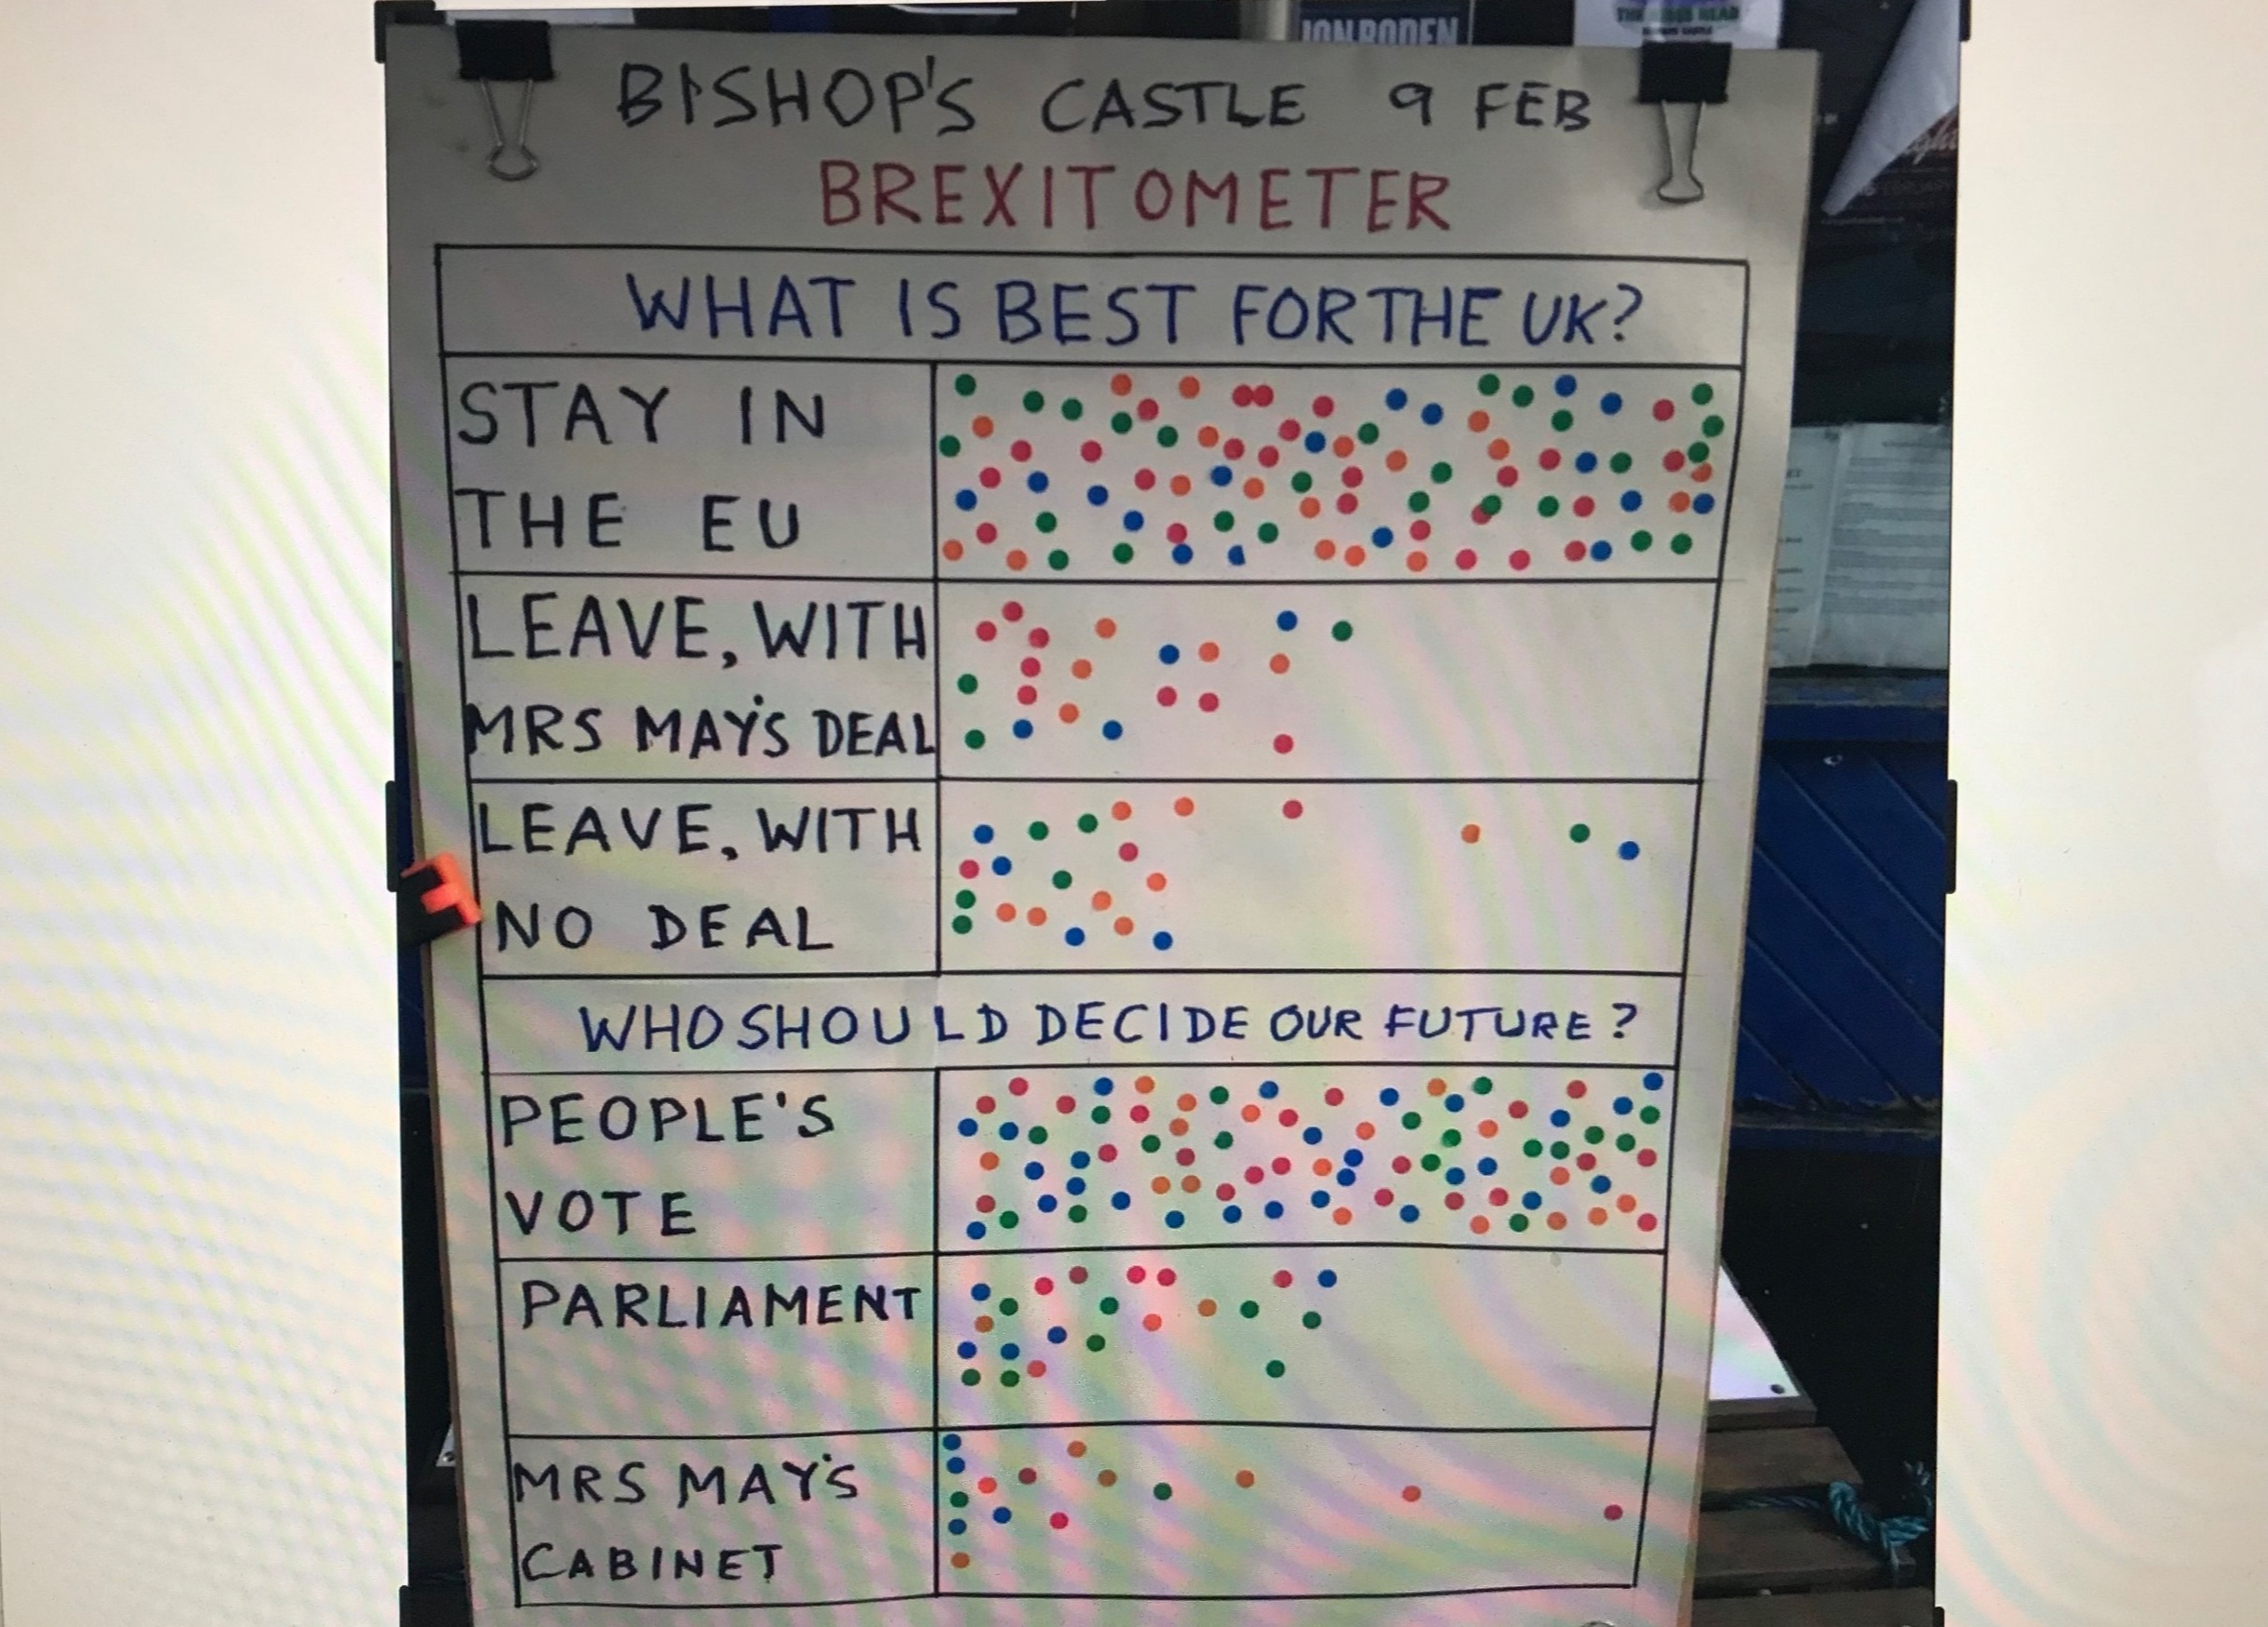 JON BODEN
BISHOP'S CASTLE 9 FEB
BREXITOMETER
WHAT IS BEST FOR THE UK?
STAY IN
THE EU
LEAVE, WITH
MRS MAY'S DEAL
LEAVE, WITH
NO DEAL
WHO SHOULD DECIDE OUR FUTURE?
PEOPLE'S
VOTE
PARLIAMENT
MRS MAY'S
CABINET